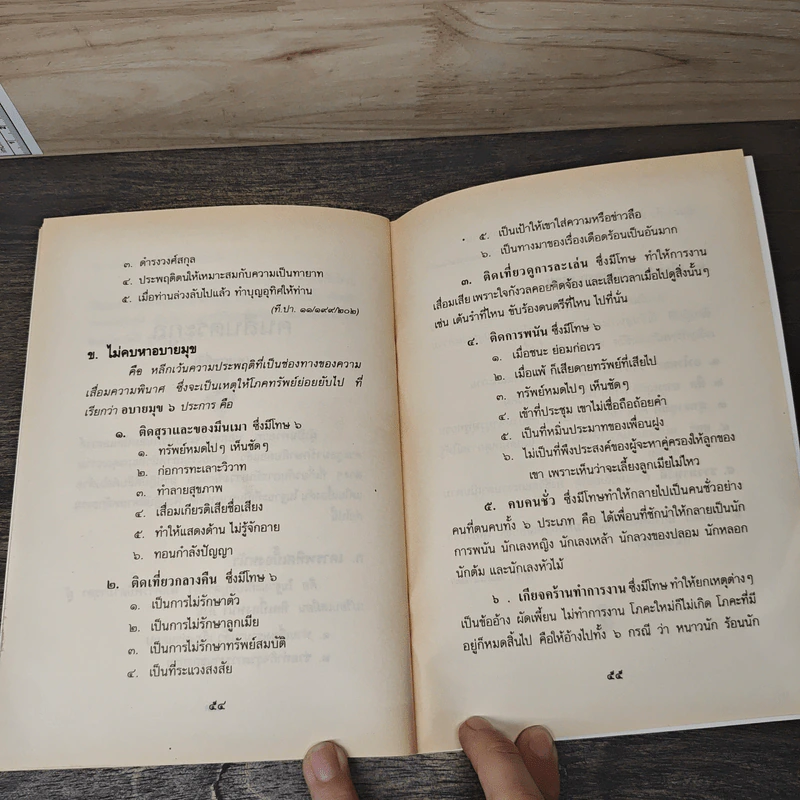 ๓. ดำรงวงศ์สกุล
๔. ประพฤติตนให้เหมาะสมกับความเป็นทายาท
๕. เมื่อท่านล่วงลับไปแล้ว ทำบุญอุทิศให้ท่าน
(ที.ปา. ๑๑/๑๙๙/๒๐๒)
ข. ไม่คบหาอบายมุข
คือ หลีกเว้นความประพฤติที่เป็นช่องทางของความ
เสื่อมความพินาศ ซึ่งจะเป็นเหตุให้โภคทรัพย์ย่อยยับไป ที่
เรียกว่า อบายมุข ๖ ประการ คือ
๑. ติดสุราและของมึนเมา ซึ่งมีโทษ ๖
๑. ทรัพย์หมดไปๆ เห็นชัดๆ
๒. ก่อการทะเลาะวิวาท
๓. ทำลายสุขภาพ
๔. เสื่อมเกียรติเสียชื่อเสียง
๕. ทำให้แสดงด้าน ไม่รู้จักอาย
๖. ทอนกำลังปัญญา
๒. ติดเที่ยวกลางคืน ซึ่งมีโทษ ๖
๑. เป็นการไม่รักษาตัว
๒. เป็นการไม่รักษาลูกเมีย
๓. เป็นการไม่รักษาทรัพย์สมบัติ
๔. เป็นที่ระแวงสงสัย
๕๔
๕. เป็นเป้าให้เขาใส่ความหรือข่าวลือ
๖. เป็นทางมาของเรื่องเดือดร้อนเป็นอันมาก
๓. ติดเที่ยวดูการละเล่น ซึ่งมีโทษ ทำให้การงาน
เสื่อมเสีย เพราะใจกังวลคอยคิดจ้อง และเสียเวลาเมื่อไปดูสิ่งนั้นๆ
เช่น เต้นรำที่ไหน ขับร้องดนตรีที่ไหน ไปที่นั่น
๔. ติดการพนัน ซึ่งมีโทษ ๖
๑. เมื่อชนะ ย่อมก่อเวร
๒. เมื่อแพ้ ก็เสียดายทรัพย์ที่เสียไป
๓. ทรัพย์หมดไปๆ เห็นชัดๆ
๔. เข้าที่ประชุม เขาไม่เชื่อถือถ้อยคำ
๕. เป็นที่หมิ่นประมาทของเพื่อนฝูง
๖. ไม่เป็นที่พึงประสงค์ของผู้จะหาคู่ครองให้ลูกของ
เขา เพราะเห็นว่าจะเลี้ยงลูกเมียไม่ไหว
๕. คบคนชั่ว ซึ่งมีโทษทำให้กลายไปเป็นคนชั่วอย่าง
คนที่ตนคบทั้ง ๖ ประเภท คือ ได้เพื่อนที่ชักนำให้กลายเป็นนัก
การพนัน นักเลงหญิง นักเลงเหล้า นักลวงของปลอม นักหลอก
นักต้ม และนักเลงหัวไม้
๖ . เกียจคร้านทำการงาน ซึ่งมีโทษ ทำให้ยกเหตุต่างๆ
เป็นข้ออ้าง ผัดเพี้ยน ไม่ทำการงาน โภคะใหม่ก็ไม่เกิด โภคะที่มี
อยู่ก็หมดสิ้นไป คือให้อ้างไปทั้ง ๖ กรณี ว่า หนาวนัก ร้อนนัก
๕๕